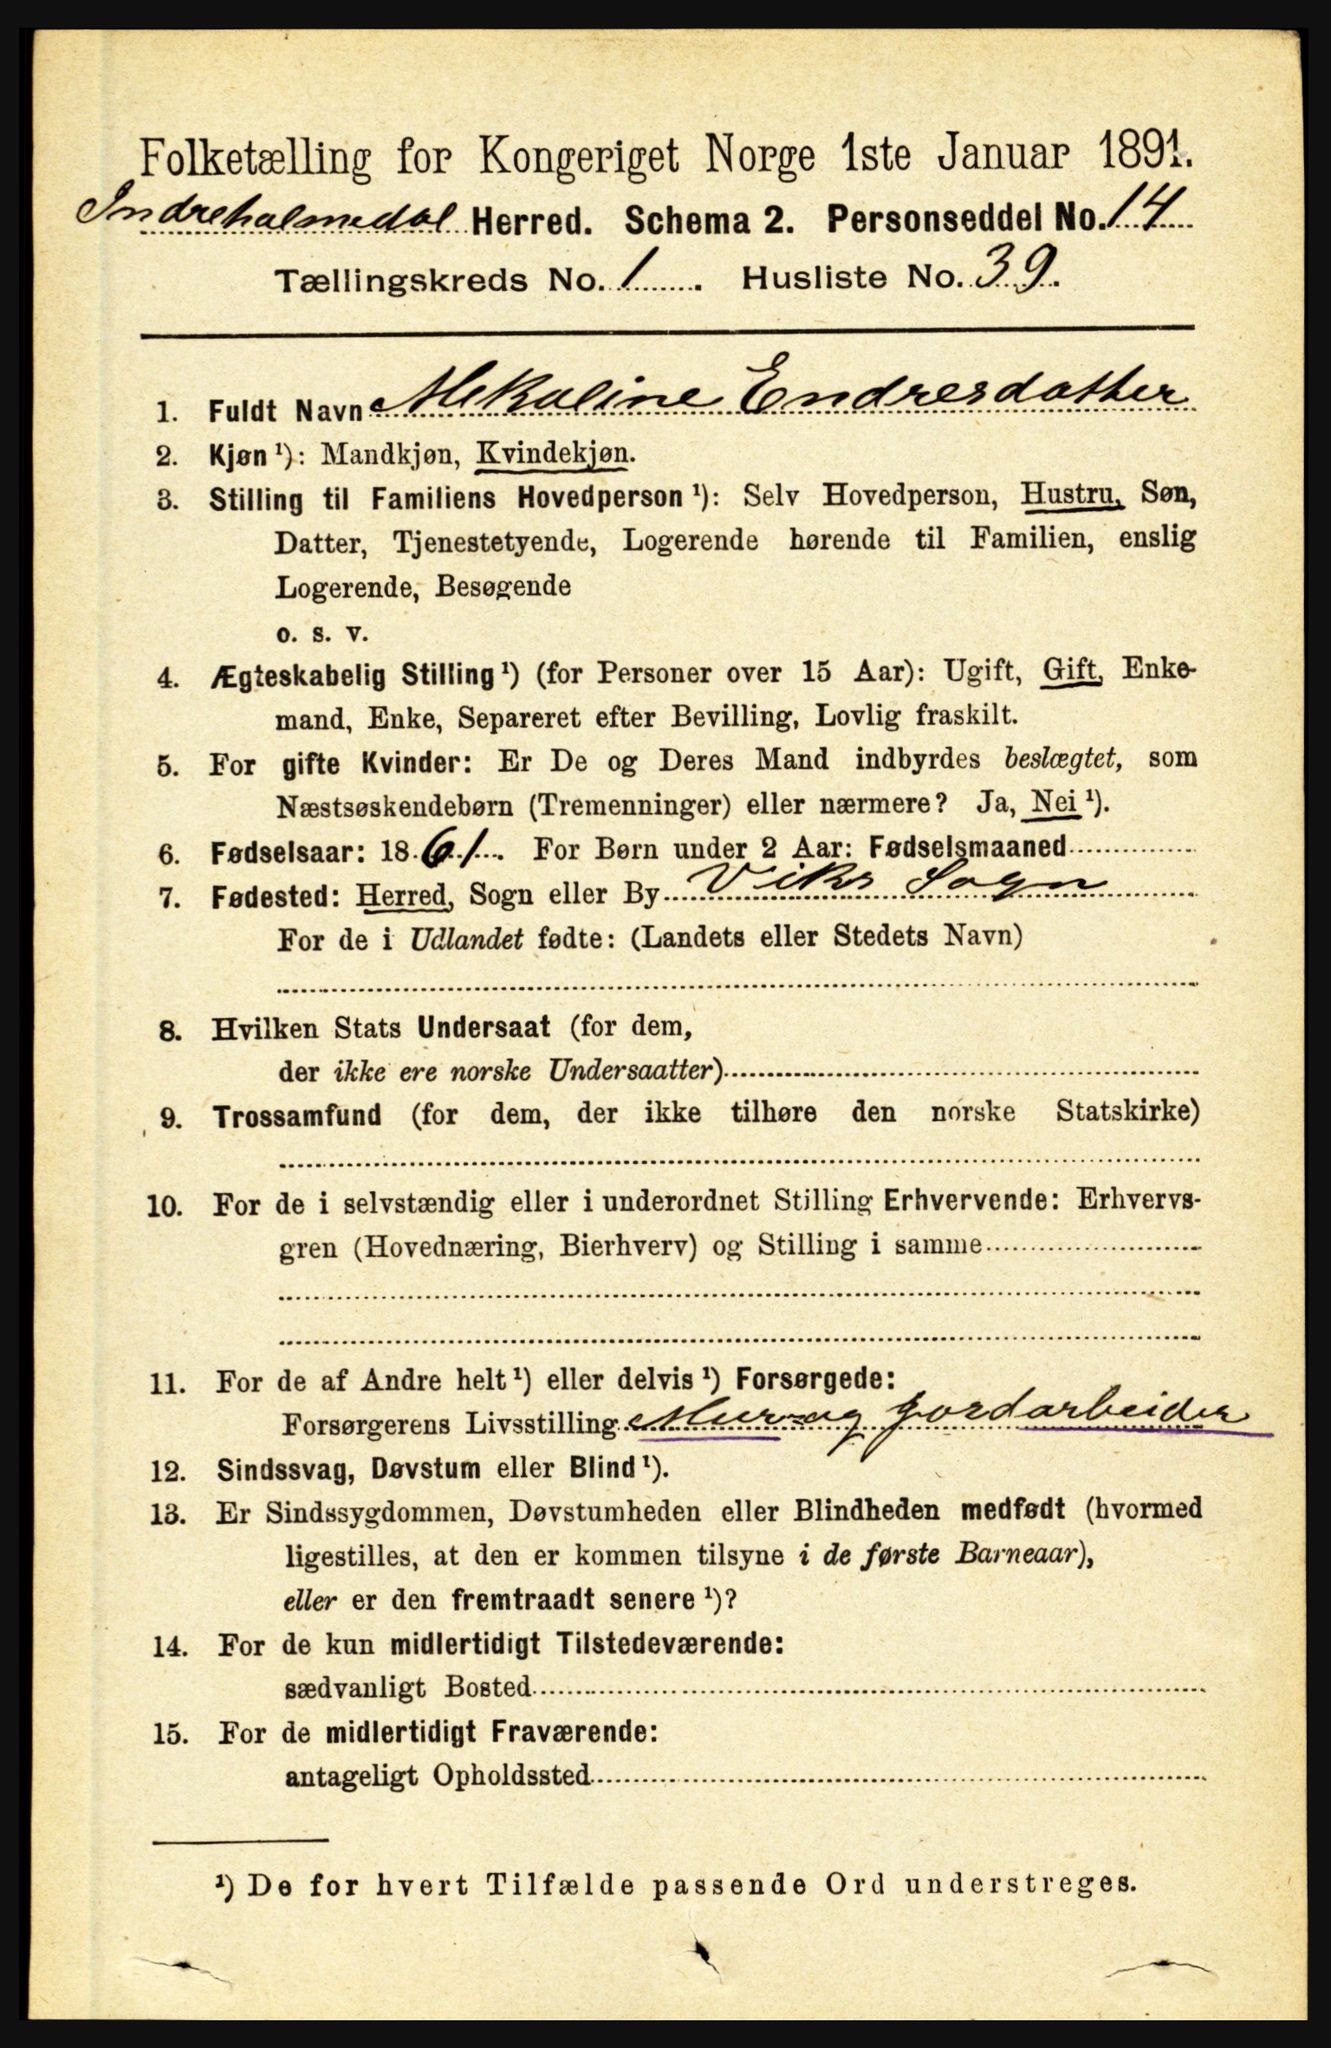 Folketælling for Kongeriget Norge 1ste Januar 1891.
Indreholmedal Herred. Schema 2. Personseddel No. 14
Tællingskreds No. 1. Husliste No. 39.
1. Fuldt Navn Mekaline Endresdatter
2. Kjøn ¹): Mandkjøn, Kvindekjøn.
3. Stilling til Familiens Hovedperson ¹): Selv Hovedperson, Hustru, Søn,
Datter, Tjenestetyende, Logerende hørende til Familien, enslig
Logerende, Besøgende
o. s. v.
4. Ægteskabelig Stilling ¹) (for Personer over 15 Aar): Ugift, Gift, Enke-
mand, Enke, Separeret efter Bevilling, Lovlig fraskilt.
5. For gifte Kvinder: Er De og Deres Mand indbyrdes beslægtet, som
Næstsøskendebørn (Tremenninger) eller nærmere? Ja, Nei ¹).
6. Fødselsaar: 1861. For Børn under 2 Aar: Fødselsmaaned
7. Fødested: Herred, Sogn eller By Viks Sogn
For de i Udlandet fødte: (Landets eller Stedets Navn)
8. Hvilken Stats Undersaat (for dem,
der ikke ere norske Undersaatter)
9. Trossamfund (for dem, der ikke tilhøre den norske Statskirke)
10. For de i selvstændig eller i underordnet Stilling Erhvervende: Erhvervs-
gren (Hovednæring, Bierhverv) og Stilling i samme
11. For de af Andre helt ¹) eller delvis ¹) Forsørgede:
Forsørgerens Livsstilling Mur og jordarbeider
12. Sindssvag, Døvstum eller Blind ¹).
13. Er Sindssygdommen, Døvstumheden eller Blindheden medfødt (hvormed
ligestilles, at den er kommen tilsyne i de første Barneaar),
eller er den fremtraadt senere ¹)?
14. For de kun midlertidigt Tilstedeværende:
sædvanligt Bosted
15. For de midlertidigt Fraværende:
antageligt Opholdssted
¹) De for hvert Tilfælde passende Ord understreges.